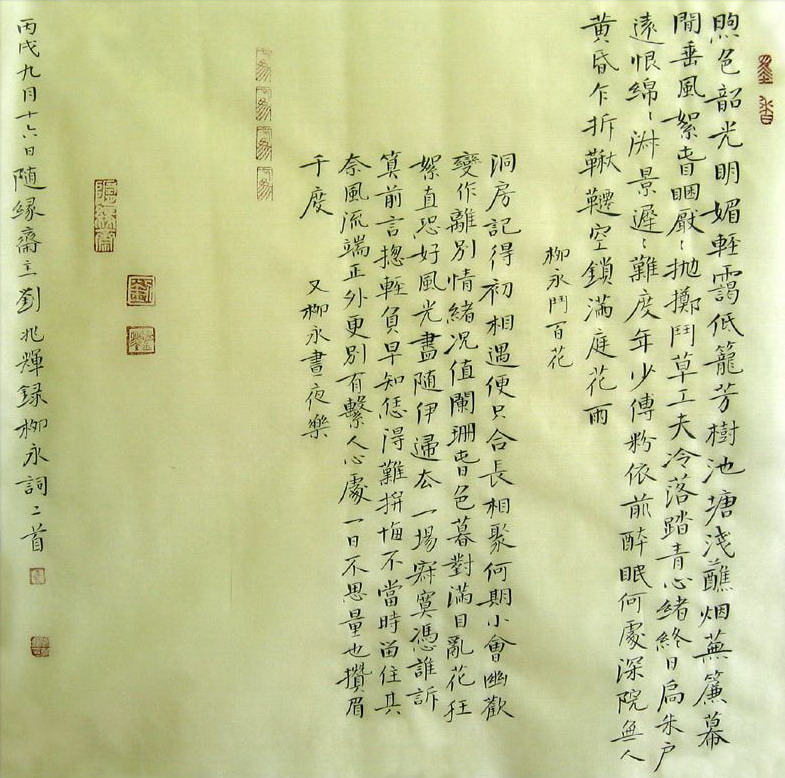 墨香
煦色韶光明媚輕靄低籠芳樹池塘淺蘸烟蕪簾幕
閒垂風絮春困厭厭抛擲鬥草工夫冷落踏青心緒終日扃朱戶
遠恨綿綿淑景遲遲難度年少傅粉依前醉眠何處深院無人
黄昏乍拆鞦韆空鎖滿庭花雨
柳永鬥百花
洞房記得初相遇便只合長相聚何期小會幽歡
變作離別情緒况值闌珊春色暮對滿目亂花狂
絮直恐好風光盡隨伊歸去一場寂寞憑誰訴
算前言揔輕負早知恁得難拚悔不當時留住其
奈風流端正外更別有繫人心處一日不思量也攢眉
千度
又柳永晝夜樂
隨緣齋
劉
丙戌九月十六日隨緣齋主劉兆輝録柳永詞二首